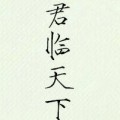 君临天下